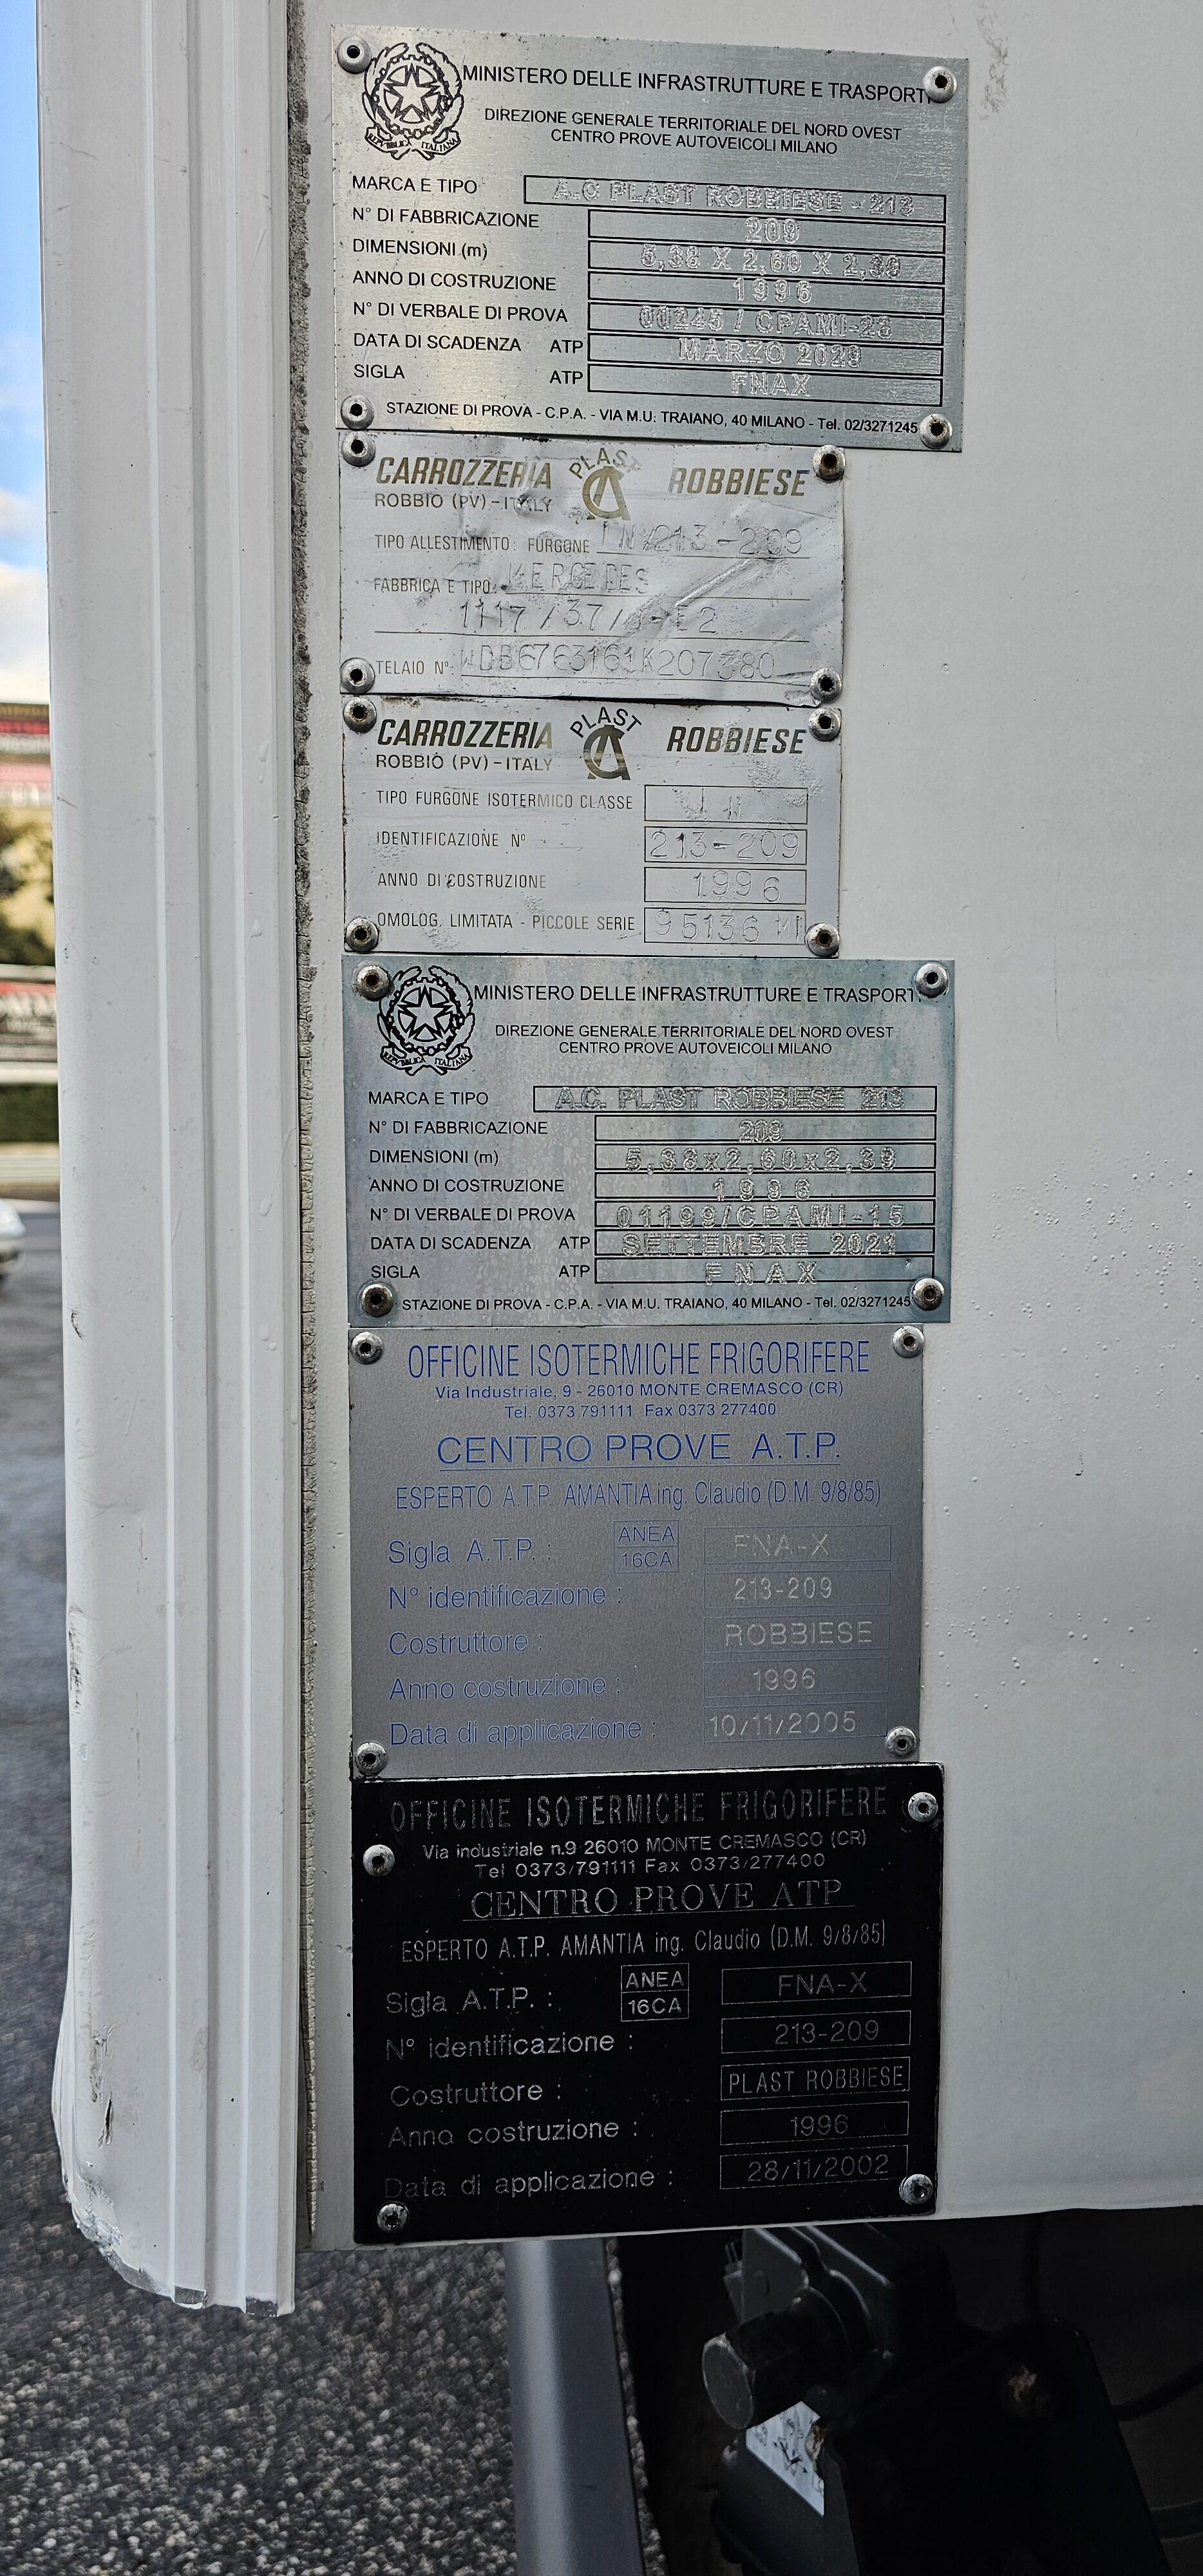 MINISTERO DELLE INFRASTRUTTURE E TRASPORTI
DIREZIONE GENERALE TERRITORIALE DEL NORD OVEST
CENTRO PROVE AUTOVEICOLI MILANO
REPVBBLICA ITALIANA
MARCA E TIPO A.C PLAST ROBBIESE - 213
N° DI FABBRICAZIONE 209
DIMENSIONI (m) 5,38 X 2,60 X 2,39
ANNO DI COSTRUZIONE 1996
N° DI VERBALE DI PROVA 00245 / CPAMI-23
DATA DI SCADENZA ATP MARZO 2029
SIGLA ATP FNAX
STAZIONE DI PROVA - C.P.A. - VIA M.U. TRAIANO, 40 MILANO - Tel. 02/3271245
CARROZZERIA PLAST CA ROBBIESE
ROBBIO (PV) - ITALY
TIPO ALLESTIMENTO: FURGONE 213-209
FABBRICA E TIPO: MERCEDES
1117 / 37 /
TELAIO N°: WDB6763161K207380
CARROZZERIA PLAST CA ROBBIESE
ROBBIO (PV) - ITALY
TIPO FURGONE ISOTERMICO CLASSE
IDENTIFICAZIONE N° 213-209
ANNO DI COSTRUZIONE 1996
OMOLOG. LIMITATA - PICCOLE SERIE 95136 MI
MINISTERO DELLE INFRASTRUTTURE E TRASPORTI
DIREZIONE GENERALE TERRITORIALE DEL NORD OVEST
CENTRO PROVE AUTOVEICOLI MILANO
REPVBBLICA ITALIANA
MARCA E TIPO A.C. PLAST ROBBIESE 213
N° DI FABBRICAZIONE 209
DIMENSIONI (m) 5,38x2,60x2,39
ANNO DI COSTRUZIONE 1996
N° DI VERBALE DI PROVA 01199/CPAMI-15
DATA DI SCADENZA ATP SETTEMBRE 2021
SIGLA ATP FNAX
STAZIONE DI PROVA - C.P.A. - VIA M.U. TRAIANO, 40 MILANO - Tel. 02/3271245
OFFICINE ISOTERMICHE FRIGORIFERE
Via Industriale, 9 - 26010 MONTE CREMASCO (CR)
Tel. 0373 791111 Fax 0373 277400
CENTRO PROVE A.T.P.
ESPERTO A.T.P. AMANTIA ing. Claudio (D.M. 9/8/85)
Sigla A.T.P. : ANEA 16CA FNA-X
N° identificazione : 213-209
Costruttore : ROBBIESE
Anno costruzione : 1996
Data di applicazione : 10/11/2005
OFFICINE ISOTERMICHE FRIGORIFERE
Via industriale n.9 26010 MONTE CREMASCO (CR)
Tel 0373/791111 Fax 0373/277400
CENTRO PROVE ATP
ESPERTO A.T.P. AMANTIA ing. Claudio (D.M. 9/8/85)
Sigla A.T.P. : ANEA 16CA FNA-X
N° identificazione : 213-209
Costruttore : PLAST ROBBIESE
Anno costruzione : 1996
Data di applicazione : 28/11/2002